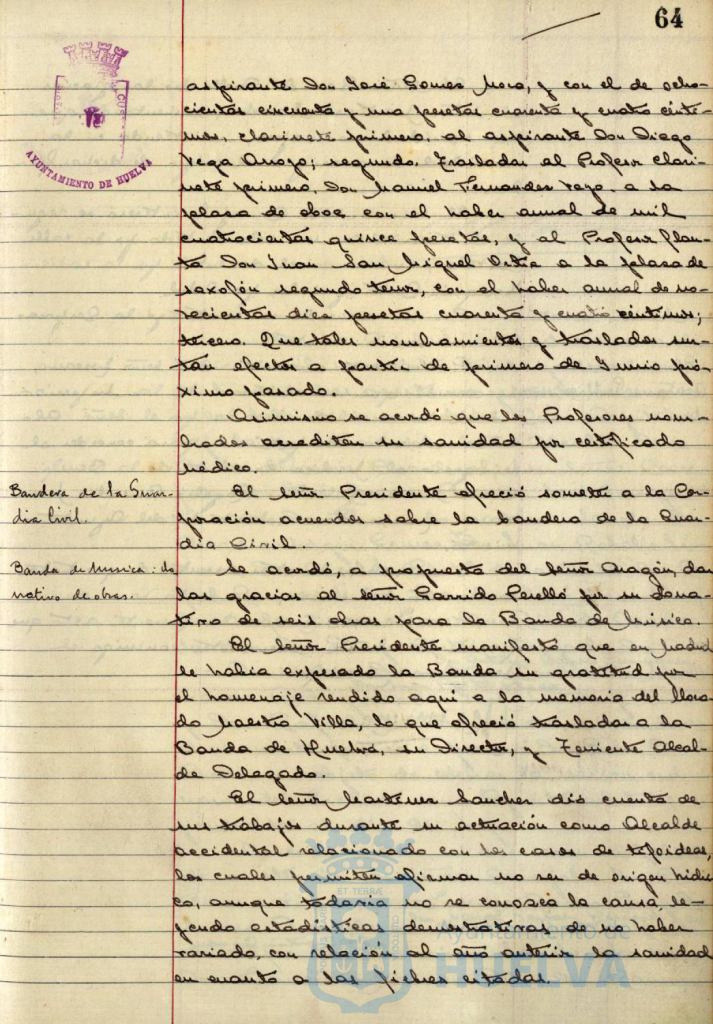 64
AYUNTAMIENTO DE HUELVA
aspirante Don José Gomez Moro, y con el de ocho-
cientas cincuenta y una pesetas cuarenta y cuatro cénti-
mos, clarinete primero, al aspirante Don Diego
Vega Arroyo; segundo. Trasladar al Profesor clari-
nete primero, Don Manuel Fernandez a la
plaza de oboe, con el haber anual de mil
cuatrocientas quince pesetas, y al Profesor flau-
ta Don Juan San Miguel Ortiz a la plaza de
saxofón segundo tenor, con el haber anual de no-
vecientas diez pesetas cuarenta y cuatro céntimos;
tercero. Que tales nombramientos y traslados sur-
tan efectos a partir de primero de Junio pró-
ximo pasado.
Asimismo se acordó que los Profesores nom-
brados acrediten su sanidad por certificado
médico.
Bandera de la Guar-
dia Civil.
El señor Presidente ofreció someter a la Cor-
poración acuerdos sobre la bandera de la Guar-
dia Civil.
Banda de Musica: do
nativo de obras.
Se acordó, a propuesta del señor Aragón, dar
las gracias al señor Garrido Perelló por su dona-
tivo de seis obras para la Banda de Música.
El señor Presidente manifestó que en Madrid
le habia expresado la Banda su gratitud por
el homenaje rendido aquí a la memoria del llora-
do Maestro Villa, lo que ofreció trasladar a la
Banda de Huelva, su Director, y Teniente Alcal-
de Delegado.
El señor Martinez Sanchez dió cuenta de
sus trabajos durante su actuación como Alcalde
accidental relacionado con los casos de tifoideas,
los cuales permiten afirmar no ser de origen hídri-
co, aunque todavia no se conozca la causa, le-
yendo estadísticas demostrativas de no haber
variado, con relación al año anterior la sanidad
en cuanto a las fiebres citadas.
HUELVA